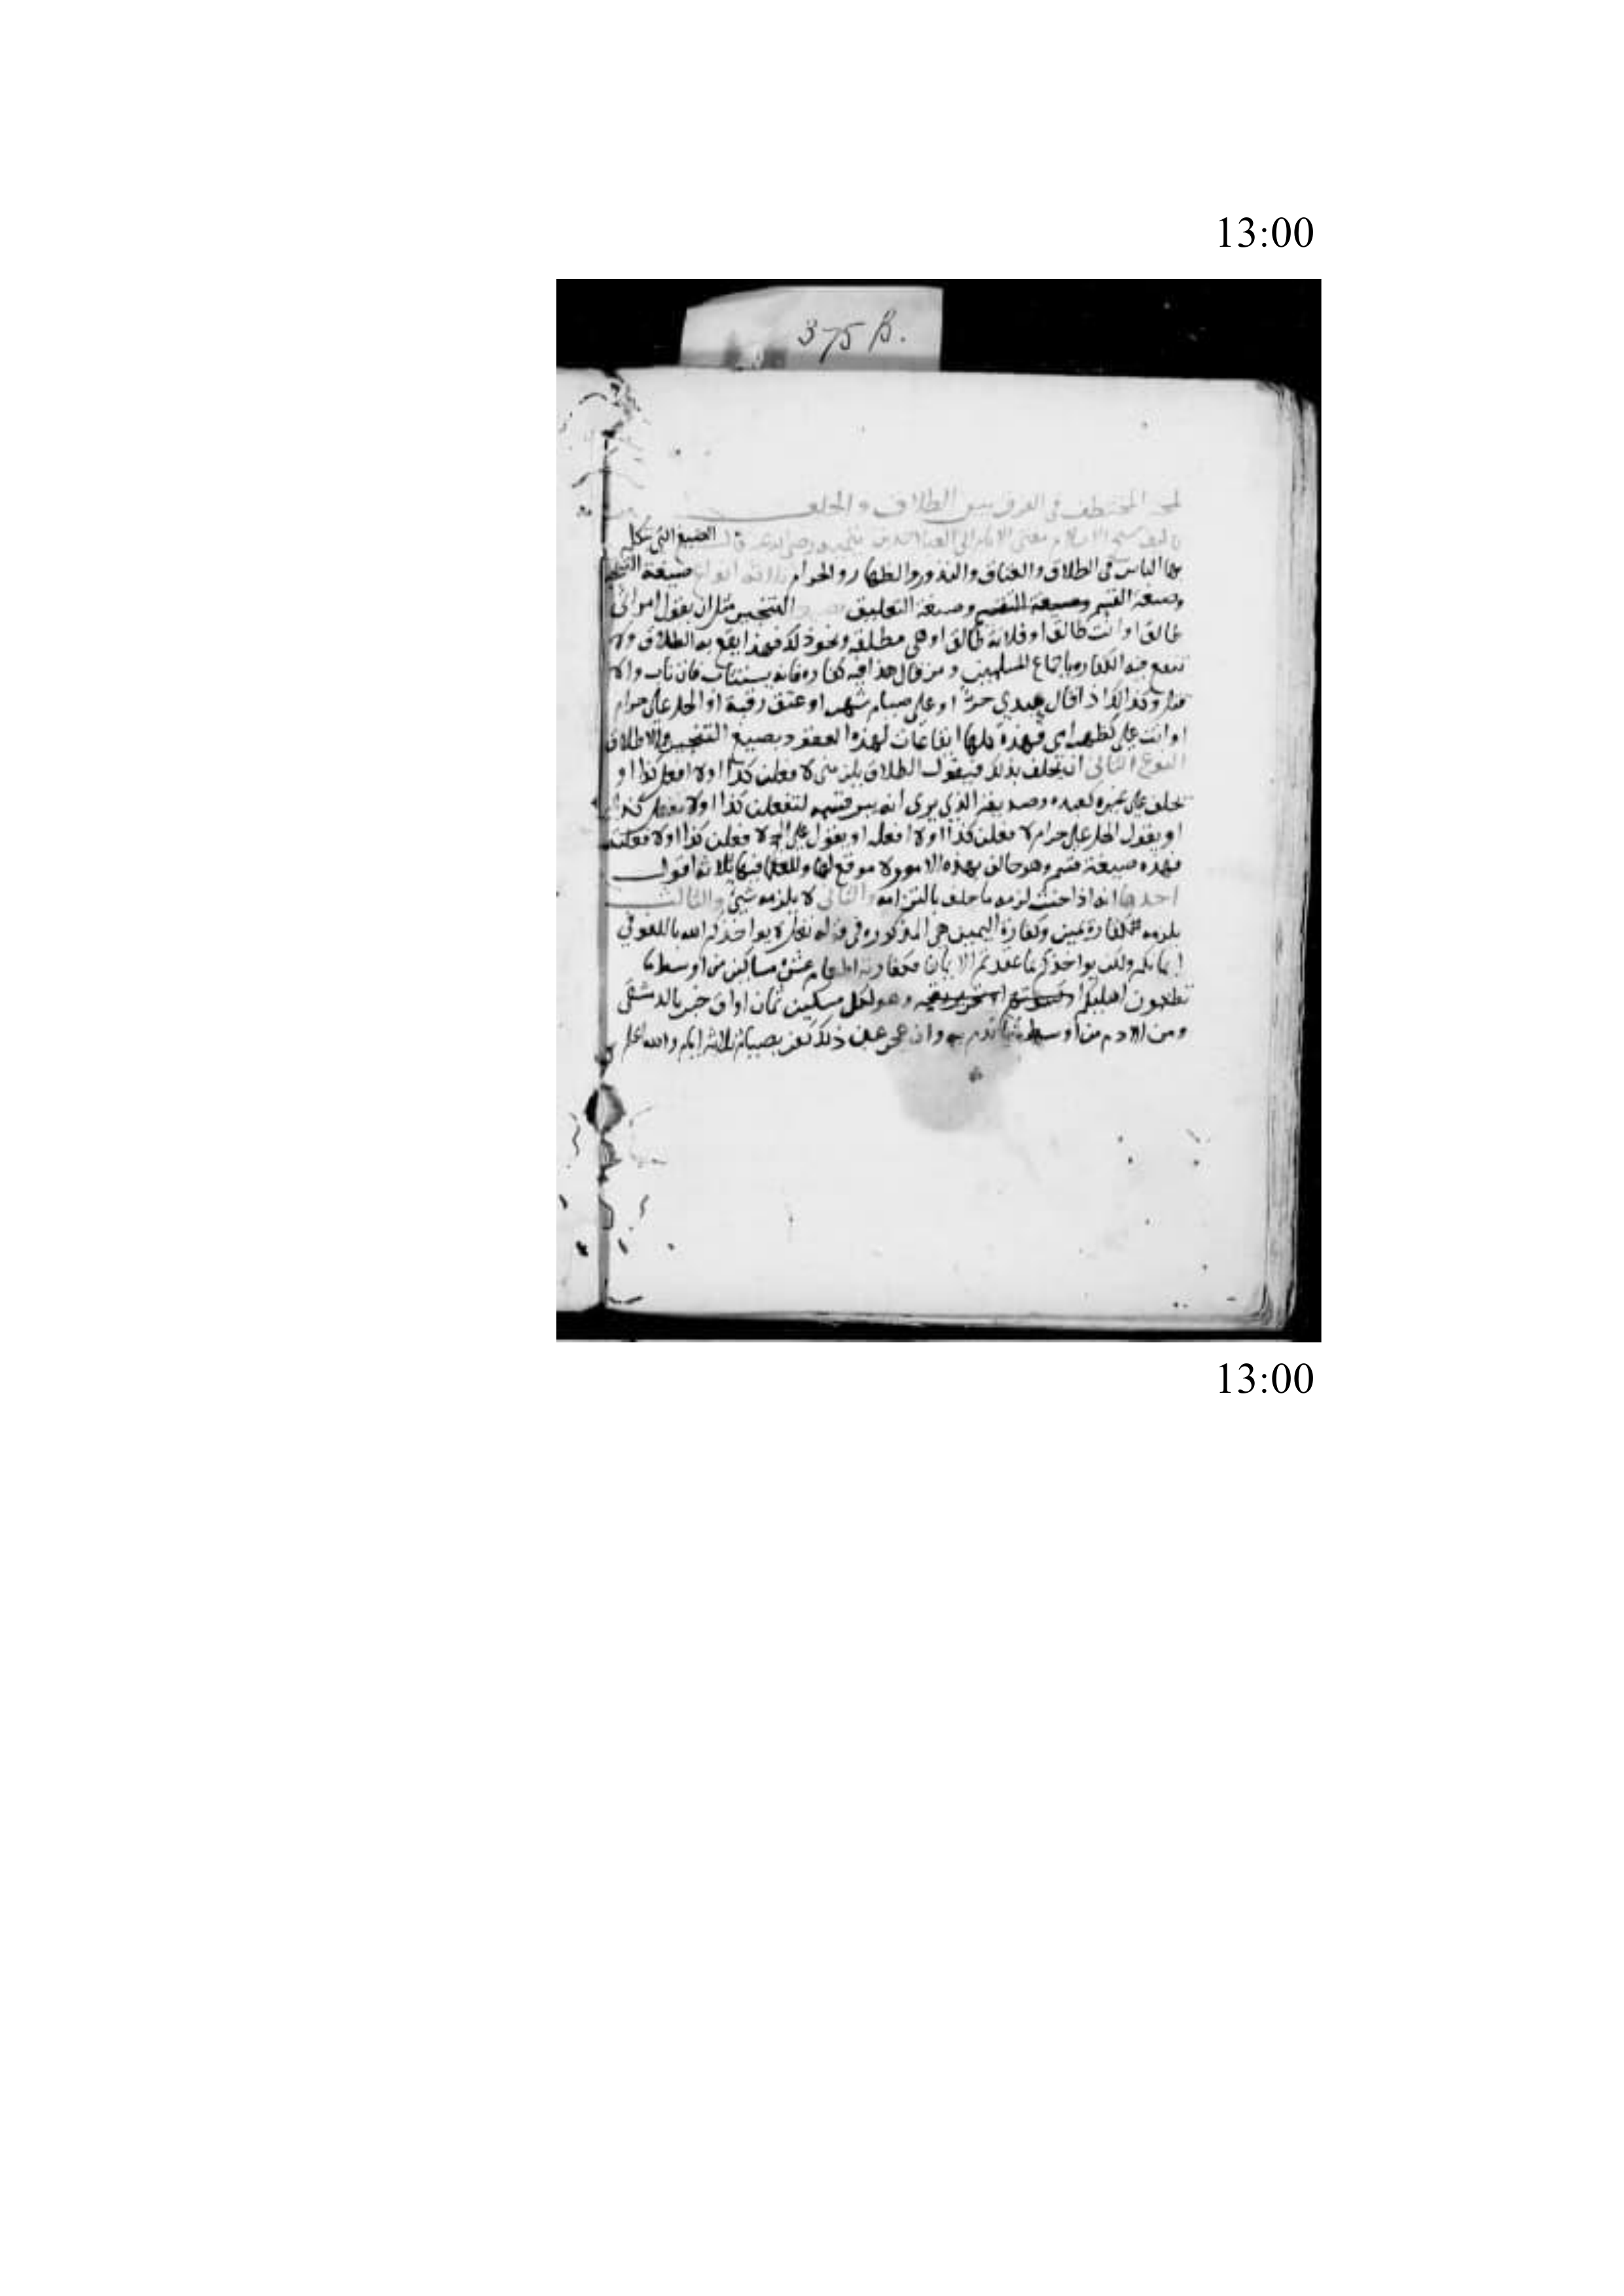 13:00
375 B.
لمحة المختطف في الفرق بين الطلاق والحلف
تاليف شيخ الاسلام مفتي الانام ابي العباس احمد بن تيميه رضي الله عنه قال الصيغ التي يتكلم
بها الناس في الطلاق والعتاق والنذور والظهار والحرام ثلاثة انواع صيغة التنجيز
وصيغة القسم وصيغة التعليق التنجيز مثل ان يقول امراتي
طالق او انت طالق او فلانة طالق او هي مطلقه ونحو ذلك فهذا يقع به الطلاق ولا
تنفع فيه الكفاره باجماع المسلمين ومن قال هذا فيه كفاره فانه يستتاب فان تاب والا
قتل وكذالك اذا قال عبدي حر او علي صيام شهر او عتق رقبة او الحل علي حرام
او انت علي كظهر امي فهذة كلها ايقاعات لهذه العقود بصيغ التنجيز والاطلاق
النوع الثاني ان يحلف بذلك فيقول الطلاق يلزمني لا فعلن كذا او لا افعل كذا او
يحلف علي غيره كعبده وصديقه الذي يرى انه يبر قسمه لتفعلن كذا او لا تفعل كذا
او يقول الحل علي حرام لا فعلن كذا او لا افعله او يقول علي الحج لا فعلن كذا او لا فعلت
فهذه صيغة قسم وهو حالف بهذه الامور لا موقع لها وللعلما فيها ثلاثة اقوال
احدها انه اذا حنث لزمه ما حلف بالتزامه والثاني لا يلزمه شيئ والثالث
يلزمه كفارة يمين وكفارة اليمين هي المذكوره في قوله تعالى لا يواخذكم الله باللغو في
ايمانكم ولكن يواخذكم بما عقدتم الايمان فكفارته اطعام عشرة مساكين من اوسط ما
تطعمون اهليكم وهو لكل مسكين ثمان اواق خبز بالدمشقي
ومن الادم من اوسط وان عجز عن ذلك كفر بصيام ثلاثة ايام والله اعلم
13:00